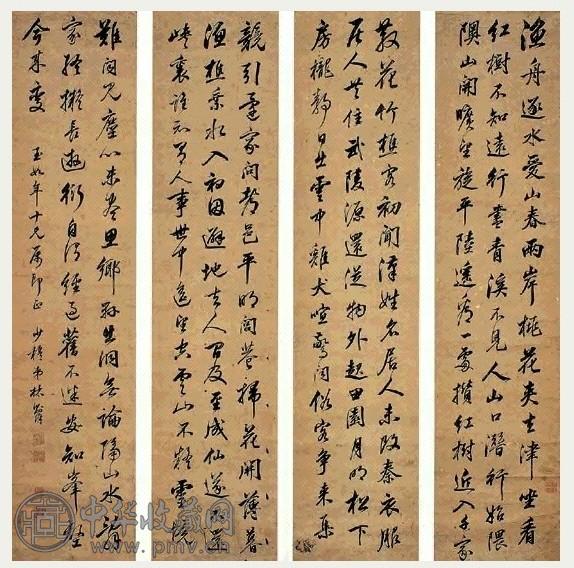 漁舟逐水愛山春兩岸桃花夾去津坐看
紅樹不知遠行盡青溪不見人山口潛行始隈
隩山開曠望旋平陸遙看一處攢紅樹近入千家
散花竹樵客初聞漢姓名居人未改秦衣服
居人共住武陵源還從物外起田園月明松下
房櫳靜日出雲中雞犬喧驚聞俗客爭來集
競引還家問都邑平明閭巷掃花開薄暮
漁樵乘水入初因避地去人間及至成仙遂不還
峽裏誰知有人事世中遙望空雲山不疑靈境
難聞見塵心未盡思鄉縣出洞無論隔山水辭
家終擬長遊衍自謂經過舊不迷安知峯壑
今來變
玉如年十兄屬即正 少穆弟林則徐
中华收藏网
www.pmv.cn